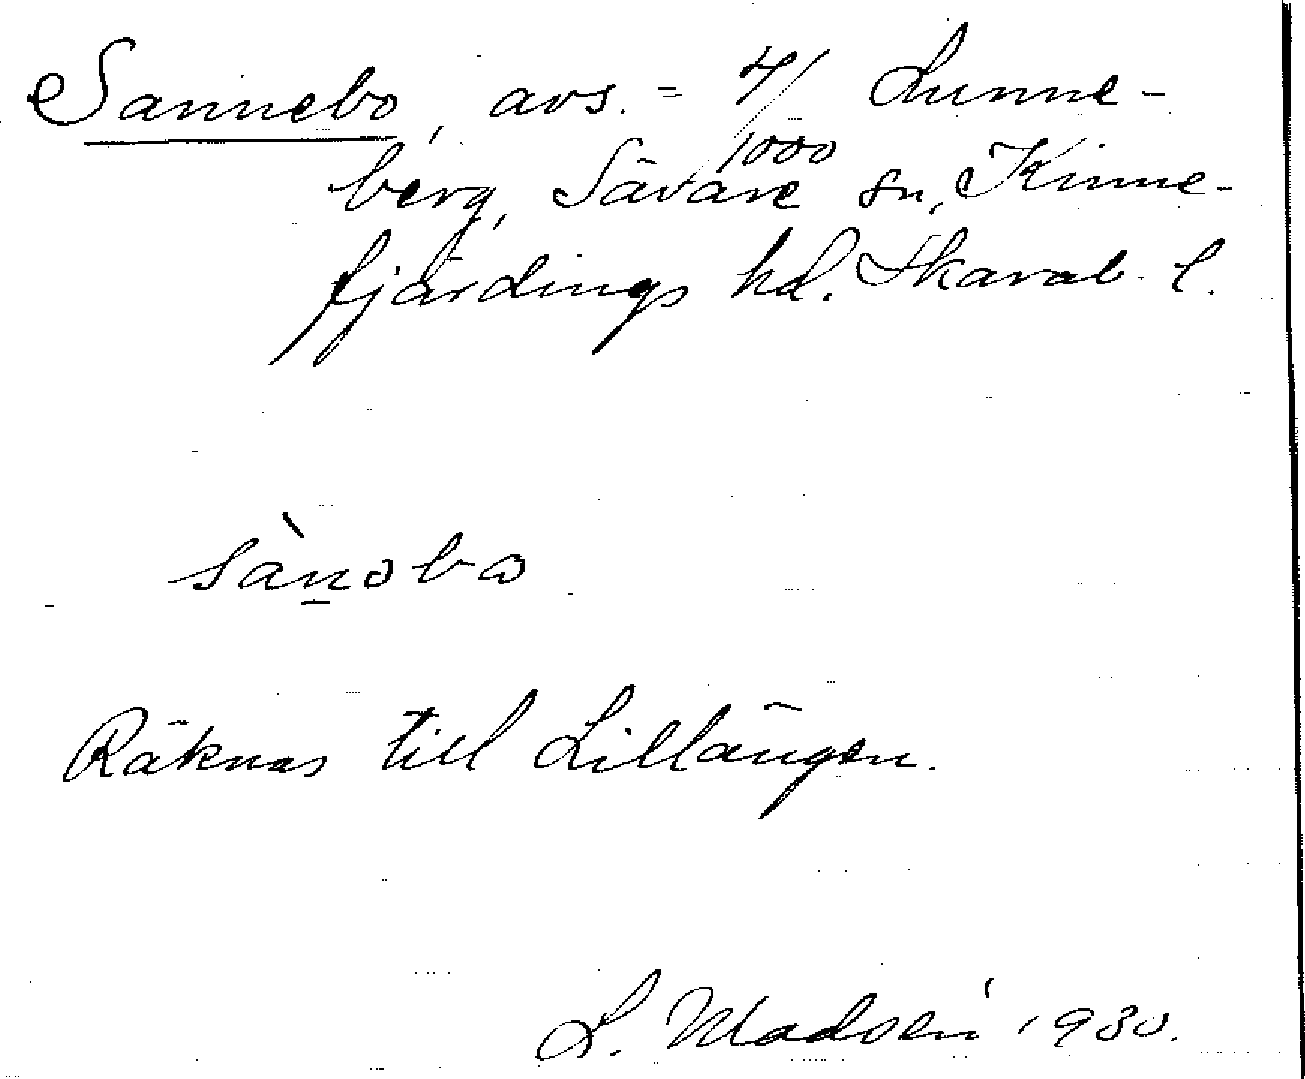 Sannebo, avs. = 4/1000 Lunne-
berg, Sävare sn, Kinne-
fjärdings hd. Skarab. l.
sànəbω
Räknas till Lillängen.
L. Madsén 1930.